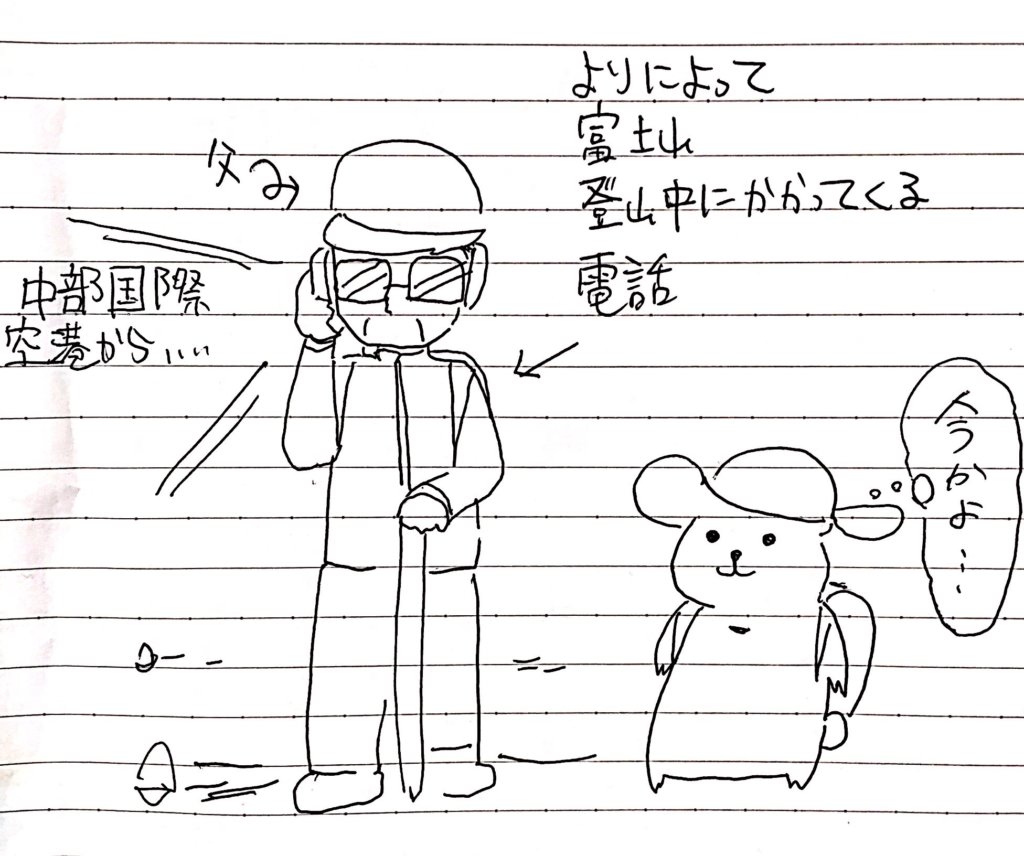 よりによって
富士山
登山中にかかってくる
電話
父
中部国際
空港から....
今かよ...